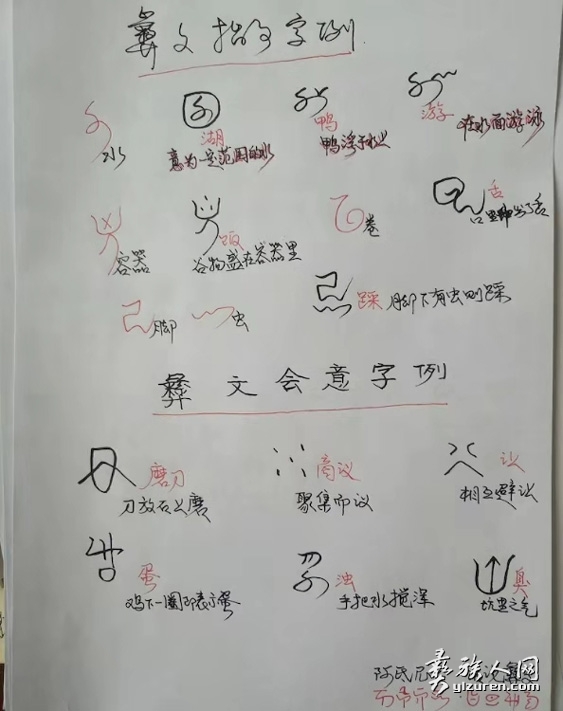 彝文指事字例
湖 鸭 游
水 意为一定范围的水 鸭浮于水上 在水面游泳
饭 舌
容器 谷物盛在容器里 卷 口里伸出了舌
脚 虫 踩 脚下有虫则踩
彝文会意字例
磨刀 商议 让
刀放石上磨 聚集而议 相互避让
蛋 浊 臭
鸡下一圈即表示蛋 手把水搅浑 坑里之气
阿氏尼
彝族人网
yizuren.com